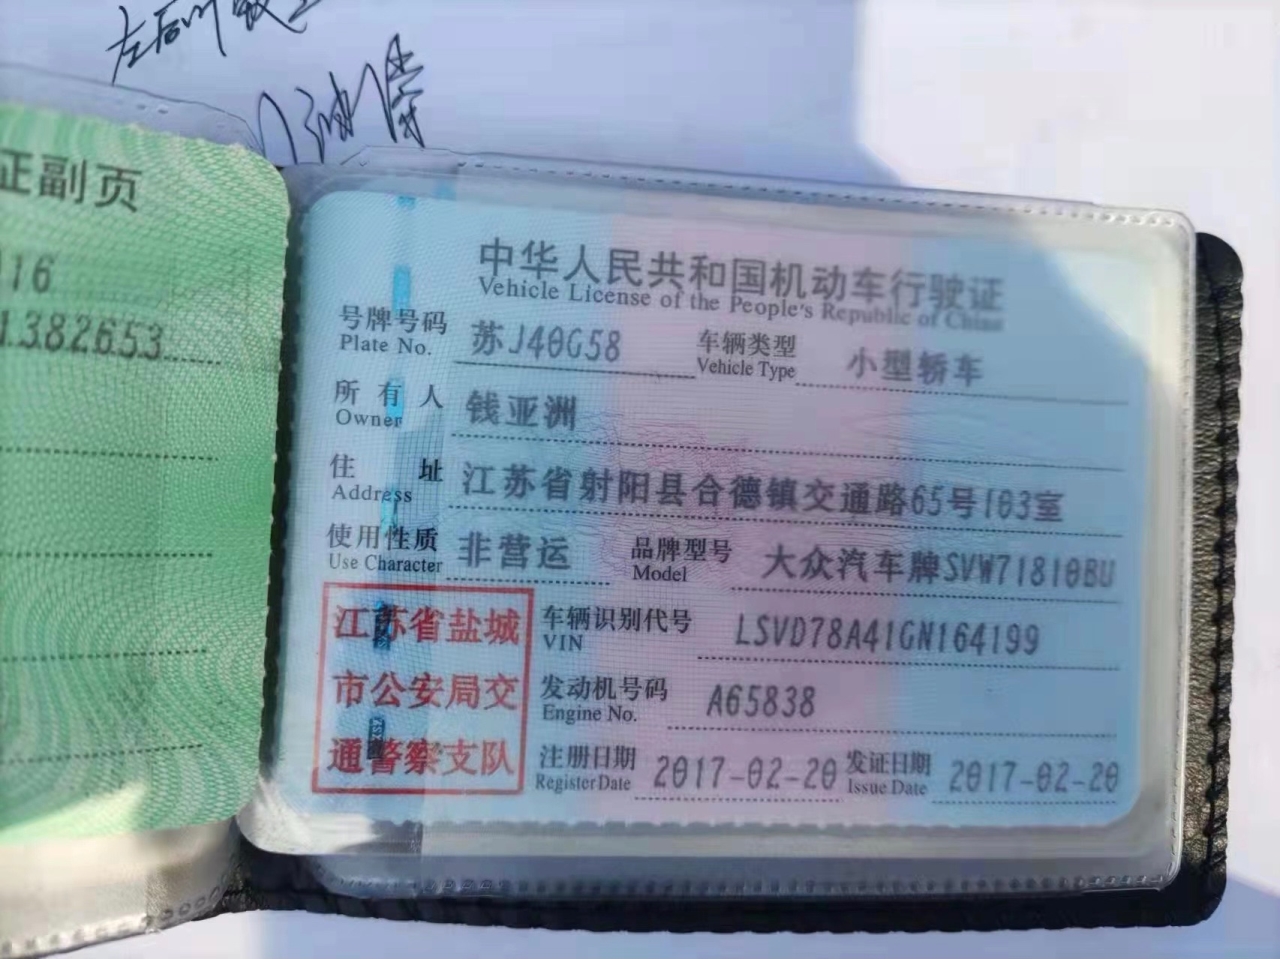 左后叶
证副页
016
1382653
中华人民共和国机动车行驶证
Vehicle License of the People's Republic of China
号牌号码 苏J40G58 车辆类型 小型轿车
Plate No. Vehicle Type
所有人 钱亚洲
Owner
住址 江苏省射阳县合德镇交通路65号103室
Address
使用性质 非营运 品牌型号 大众汽车牌SVW71810BU
Use Character Model
江苏省盐城
市公安局交
通警察支队
车辆识别代号 LSVD78A41GN164199
VIN
发动机号码 A65838
Engine No.
注册日期 2017-02-20 发证日期 2017-02-20
Register Date Issue Date